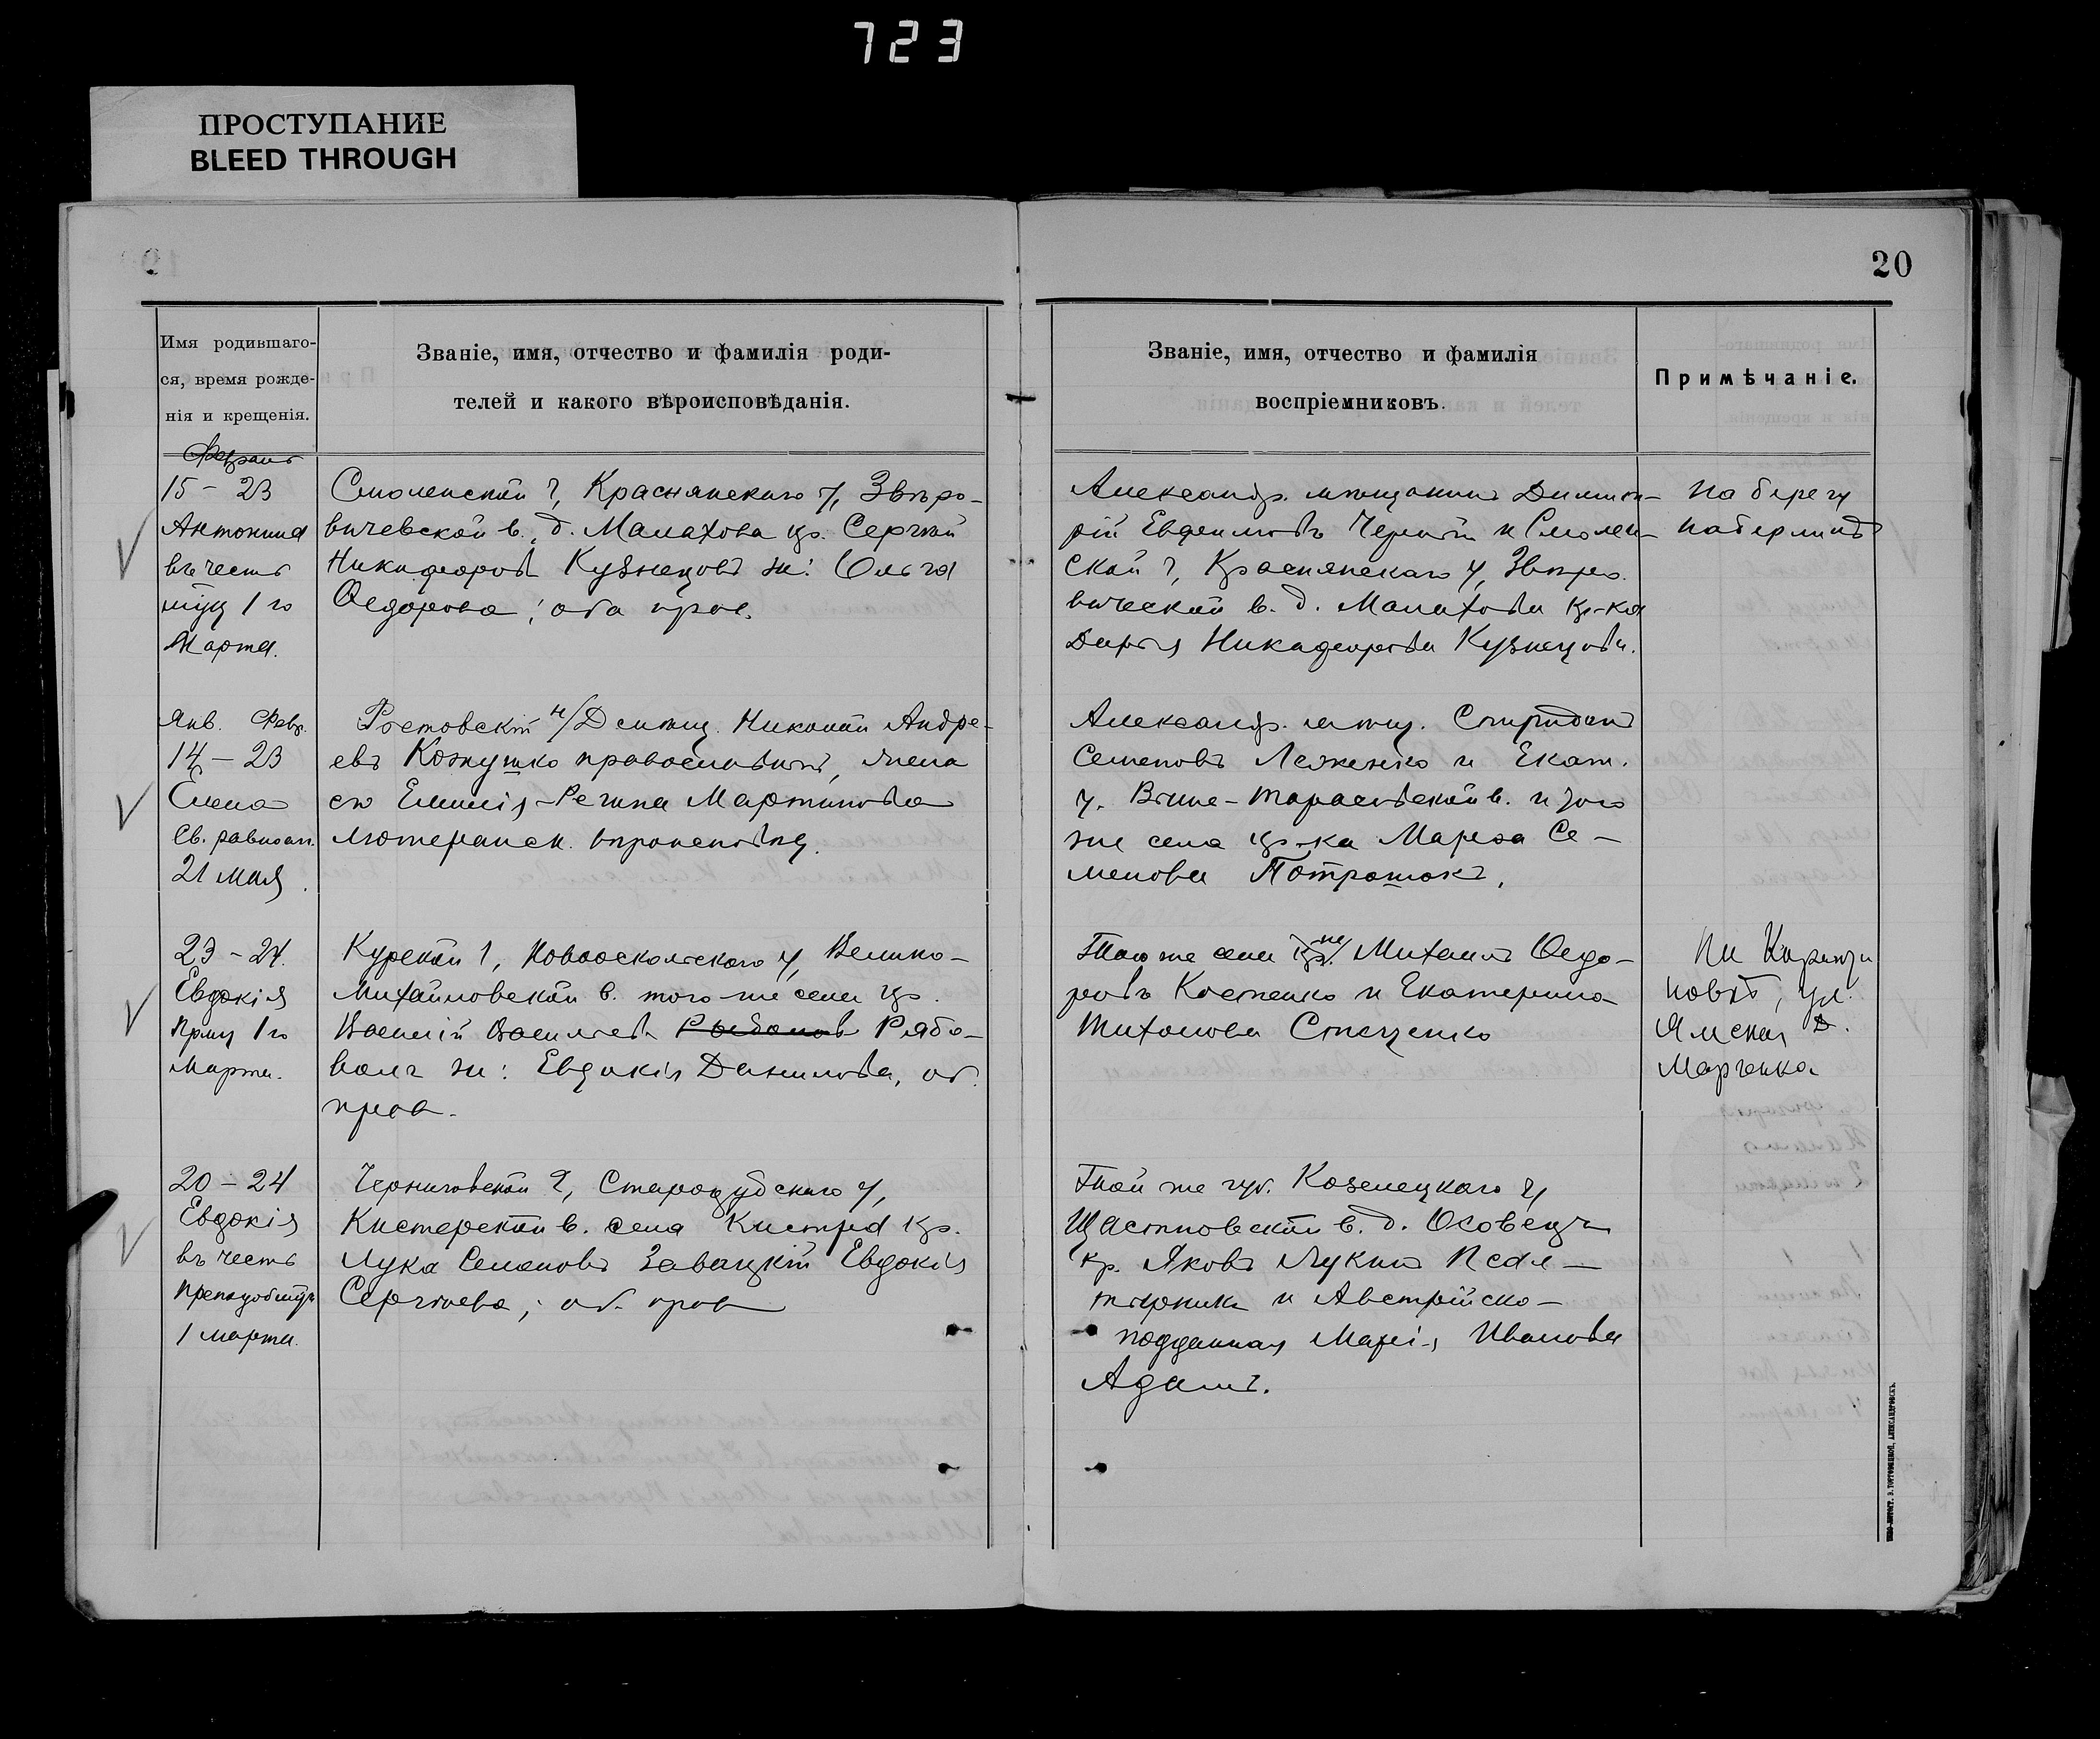 723
ПРОСТУПАНИЕ
BLEED THROUGH
20
Имя родившаго-
ся, время рожде-
нія и крещенія.
Званіе, имя, отчество и фамилія роди-
телей и какого вѣроисповѣданія.
Званіе, имя, отчество и фамилія
воспріемниковъ.
Примѣчаніе.
15 – 23
Антонина
въ честь
1 го
Марта.
Смоленской г, Краснянскаго у, Звѣро-
вичевской в., д. Малахова кр. Сергѣй
Никифоровъ Кузнецовъ ж: Ольга
Ѳедорова; оба прав.
Александр. мѣщанинъ Димит-
рій Евфимовъ Черный и Смолен-
ской г, Краснянскаго у, Звѣро-
вической в. д. Малахова кр-ка
Дарья Никифорова Кузнецова.
На берегу
Янв. Февр.
14 – 23
Елена
Св. равноап.
21 мая
Ростовскій н/Д мѣщ. Николай Андре-
евъ Кожушко православный, жена
его Емилія-Регина Мартинова
лютеранск. вѣроисповѣд.
Александр. мѣщ. Спиридонъ
Семеновъ Леженко и Екат.
у. Выше-Тарасовской в. и того
же села кр-ка Марѳа Се-
менова Потрошокъ.
23 – 24.
Евдокія
Прмц 1 го
Марта.
Курской г, Новооскольского у, Велико-
Михайловской в. того-же села кр.
Василій Васильевъ Рябо-
волъ ж: Евдокія Данилова, об.
прав.
Того же села кр-не Михаилъ Ѳедо-
ровъ Костенко и Екатерина
Тихонова Стеценко
На Каранти
новкѣ, ул.
Ямская д.
Марченка
20 – 24
Евдокія
въ честь
Преподобмц
1 марта.
Черниговской г, Стародубскаго у,
Кистерской в. села Кистера кр.
Лука Семеновъ Завацкій Евдокія
Сергѣева; об. прав
Той же губ. Козелецкаго у,
Щастновской в. д. Осовецъ
кр. Яковъ Лукинъ Псал-
тырникъ и Австрійско-
подданная Марія Иванова
Адамъ.